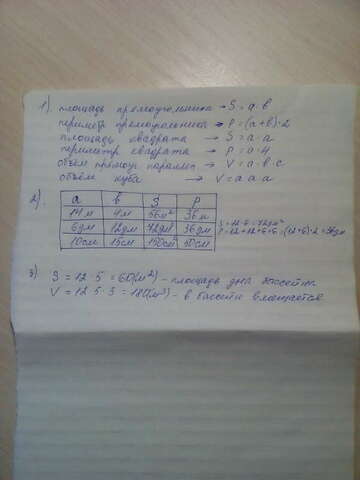 1). площадь прямоугольника → S = a·b
периметр прямоугольника → P = (a+b)·2
площадь квадрата → S = a·a
периметр квадрата → P = a·4
объём прямоуг. параллеп. → V = a·b·c
объём куба → V = a·a·a
2).
a b S P
14м 4м 56м² 36м
6дм 12дм 72дм² 36дм S = 12·6 = 72дм²
P = 12+12+6+6 = (12+6)·2 = 36дм
10см 15см 150см 50см
3) S = 12·5 = 60(м²) - площадь дна бассейна
V = 12·5·3 = 180(м³) - в бассейн вмещается